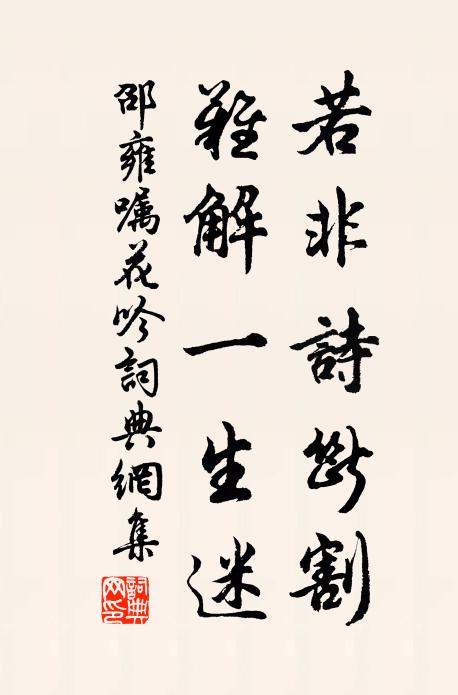 若非詩断割
難解一生迷
邵雍嘱花吟詞典網集
詞典网印